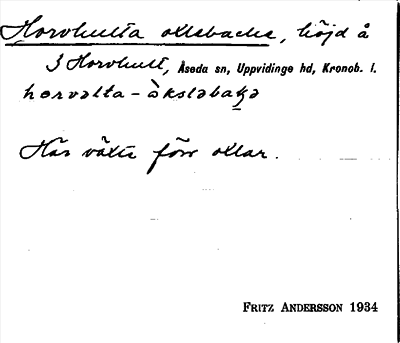 Horvhulta oxlabacke, höjd å
J Horvhult, Åseda sn, Uppvidinge hd, Kronob. l.
horvəlta - àksləbaka
Här växte förr oxlar.
FRITZ ANDERSSON 1934